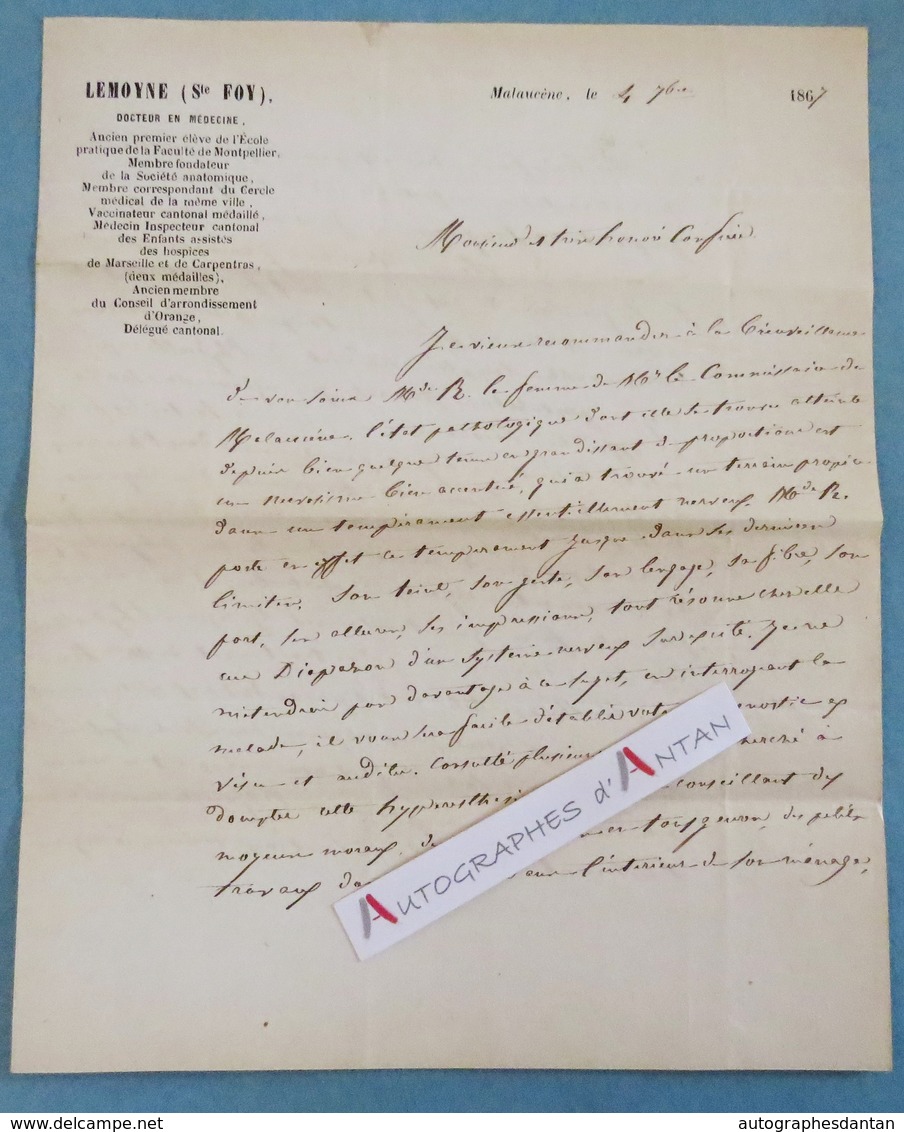 LEMOYNE (Ste FOY),
DOCTEUR EN MÉDECINE,
Ancien premier élève de l'École
pratique de la Faculté de Montpellier,
Membre fondateur
de la Société anatomique,
Membre correspondant du Cercle
médical de la même ville,
Vaccinateur cantonal médaillé,
Médecin Inspecteur cantonal
des Enfants assistés
des hospices
de Marseille et de Carpentras,
(deux médailles),
Ancien membre
du Conseil d'arrondissement
d'Orange,
Délégué cantonal.
Malaucène, le 4 7bre 1867
Monsieur et très honoré Confrère
Je viens recommander à la bienveillance
de vos soins Mde R. la femme de Mr le Commissaire de
Malaucène. l'état pathologique dont elle se trouve atteinte
depuis bien quelque tems en grandissant de proportions est
un nervosisme bien accentué, qui a trouvé un terrain propice
dans un tempérament essentiellement nerveux. Mde R.
porte en effet ce tempérament jusque dans ses dernières
limites. Son teint, son geste, son langage, sa fibre, son
port, ses allures, ses impressions, tout résonne chez elle
au Diapazon d'un système nerveux surexcité. Je ne
m'étendrai pas davantage à ce sujet, en interrogeant la
malade, il vous sera facile d'établir votre diagnostic ex
visu et auditu. Consulté plusieurs cherché à
dompter cette hyperesthésie conseillant des
moyens moraux, des petits
travaux dans l'intérieur de son ménage,
AUTOGRAPHES d'ANTAN
www.delcampe.net
autographesdantan